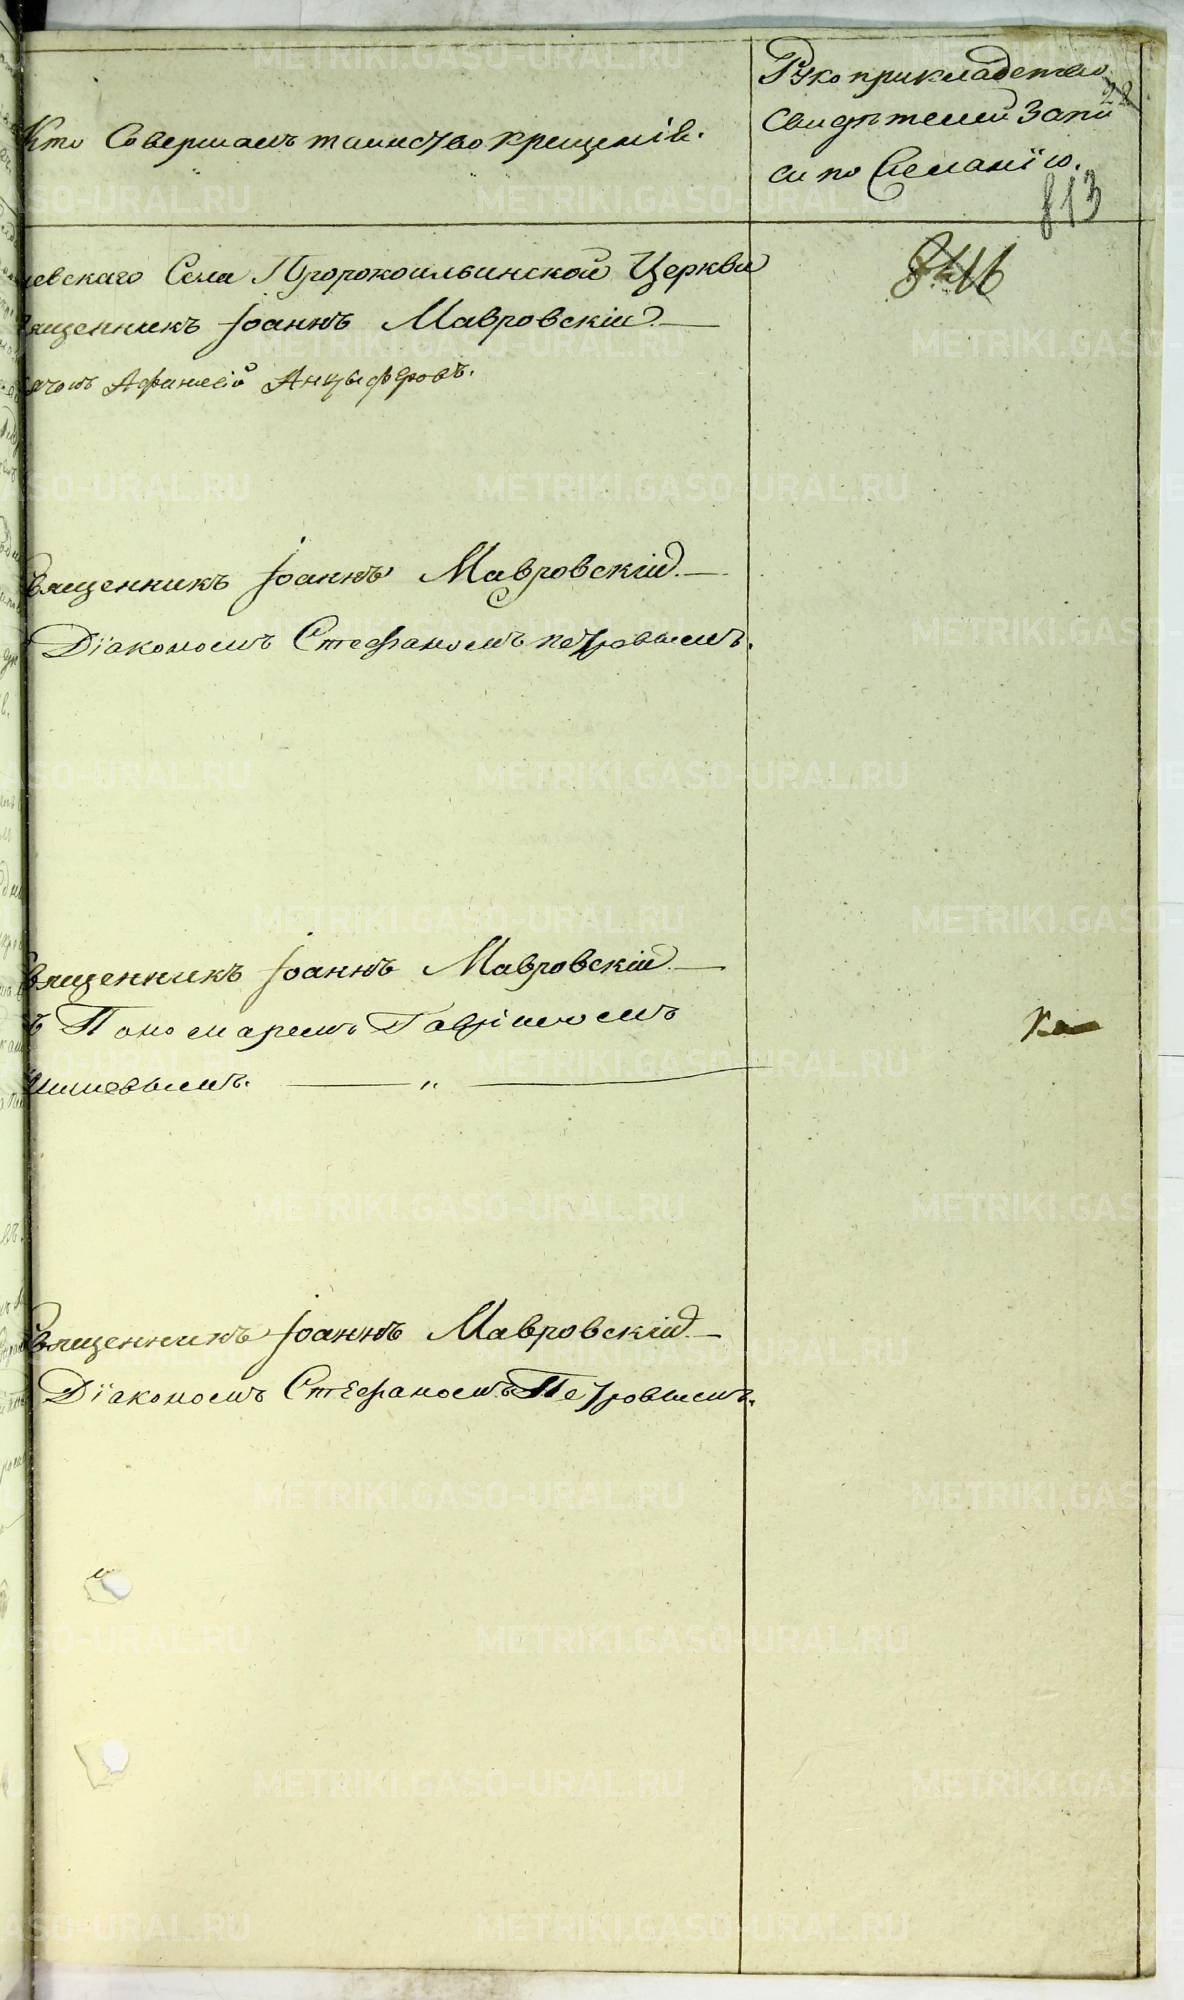 Кто Совершалъ таинство крещенія.
Рукоприкладство
Свидѣтелей Запи
си по Желанію.
22
813
евскаго Села Пророкоильинской Церкви
священникъ Іоаннъ Мавровскій.
Афанасій Анцыферовъ.
Священникъ Іоаннъ Мавровскій.
Діакономъ Стефаномъ петровымъ.
Священникъ Іоаннъ Мавровскій
ъ Пономаремъ Гавріиломъ
Священникъ Іоаннъ Мавровскій
Діакономъ Стефаномъ Петровымъ.
METRIKI.GASO-URAL.RU